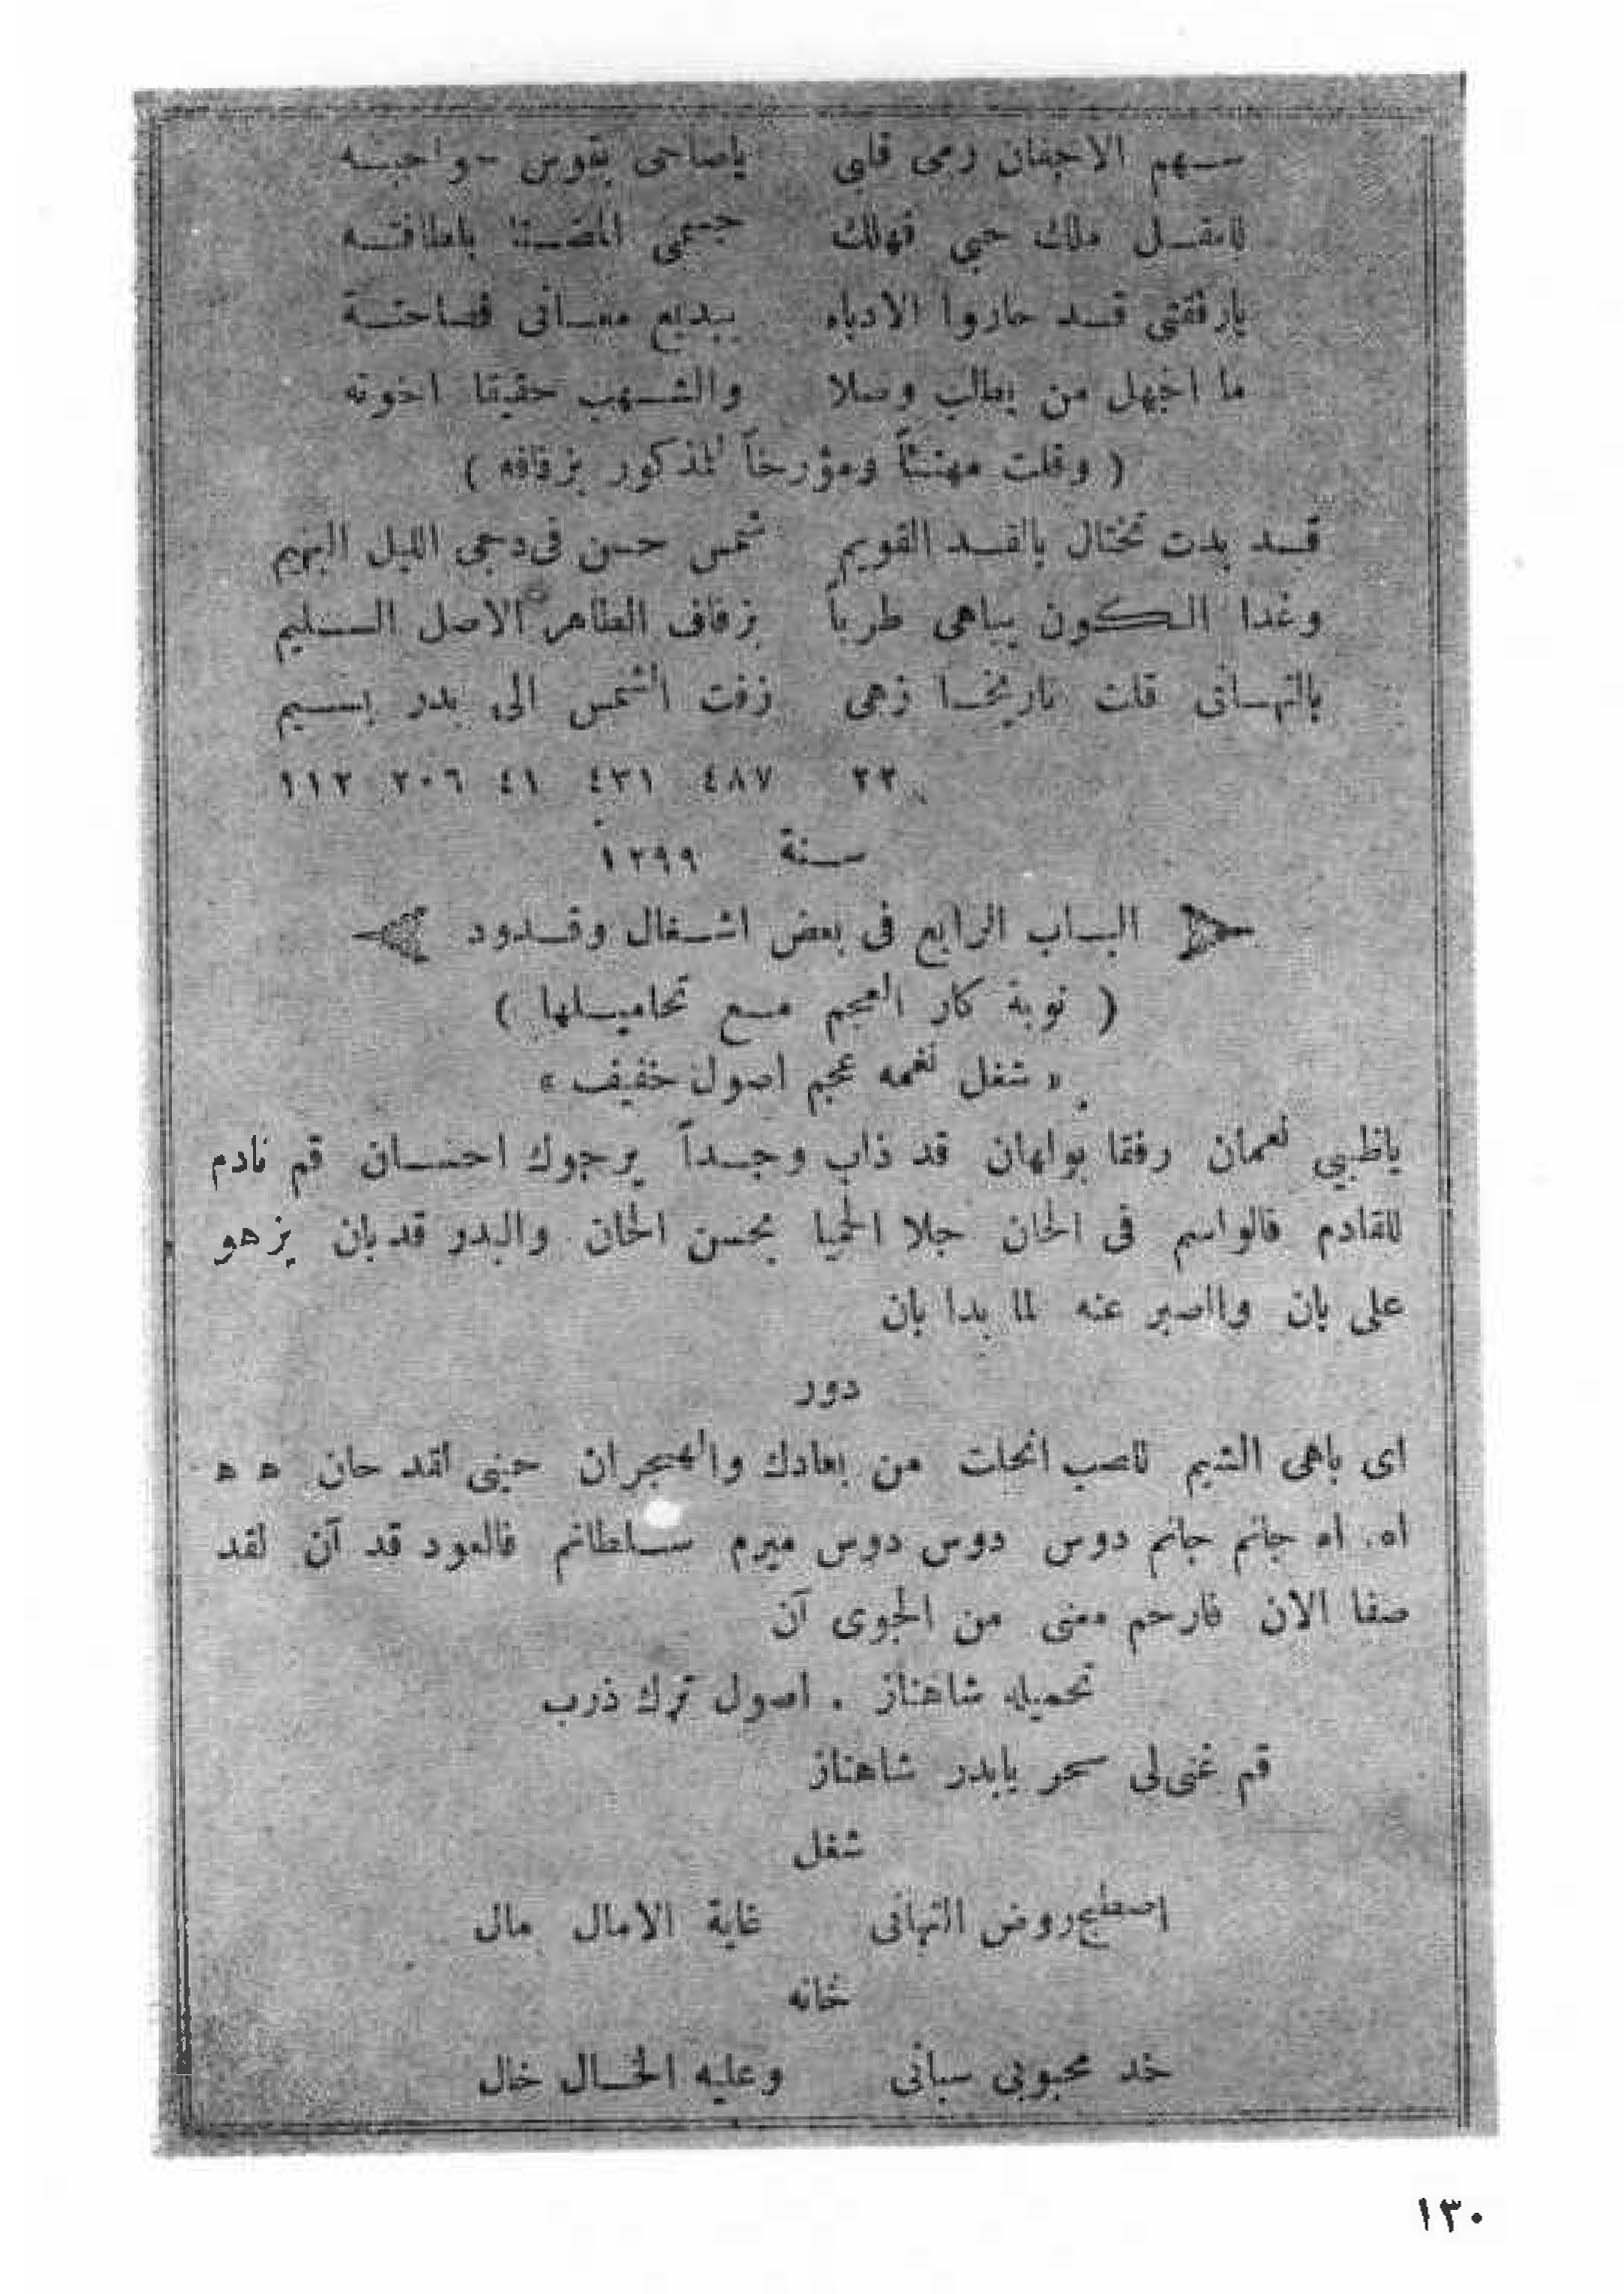 سهم الاجفان رمى قلبى ياصاحى بقوس حواجبه
للمقل ملك حبى فهلك جسمى المضنا بلطافته
يارفقتى قد حاروا الادباء ببديع معانى فصاحتة
ما اجهل من يطلب وصلا والشهب حقيقا اخوته
( وقلت مهنئاً ومؤرخاً المذكور بزفافه )
قد بدت تختال بالقد القويم شمس حسن فى دجى الليل البهيم
وغدا الكون يباهى طرباً بزفاف الطاهر الاصل السليم
بالتهانى قلت تاريخا زهى زفت الشمس الى بدر بسيم
٢٢ ٤٨٧ ٤٣١ ٤١ ٢٠٦ ١١٢
سنة ١٢٩٩
الباب الرابع فى بعض اشغال وقدود
( نوبة كار العجم مع تحاميلها )
« شغل نغمه عجم اصول خفيف »
ياظبي نعمان رفقا بولهان قد ذاب وجداً يرجوك احسان قم نادم
للقادم فالواسم فى الحان جلا الحميا بحسن الحان والبدر قد بان يزهو
على بان والصبر عنه لما بدا بان
دور
اى باهى الشيم للصب انحلت من بعادك والهجران حينى لقد حان ه ه
اه . اه جانم جانم دوس دوس دوس ميرم سلطانم فالعود قد آن لقد
صفا الان فارحم معنى من الجوى آن
تحميله شاهناز . اصول ترك ذرب
قم غنى لى سحر يابدر شاهناز
شغل
اصطبح روض التهانى غاية الامال مال
خانه
خد محبوبى سبانى وعليه الخال خال
١٣٠